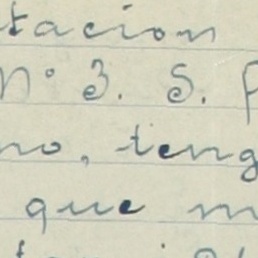 tacion
Nº 3. S. P
no, teng
que m